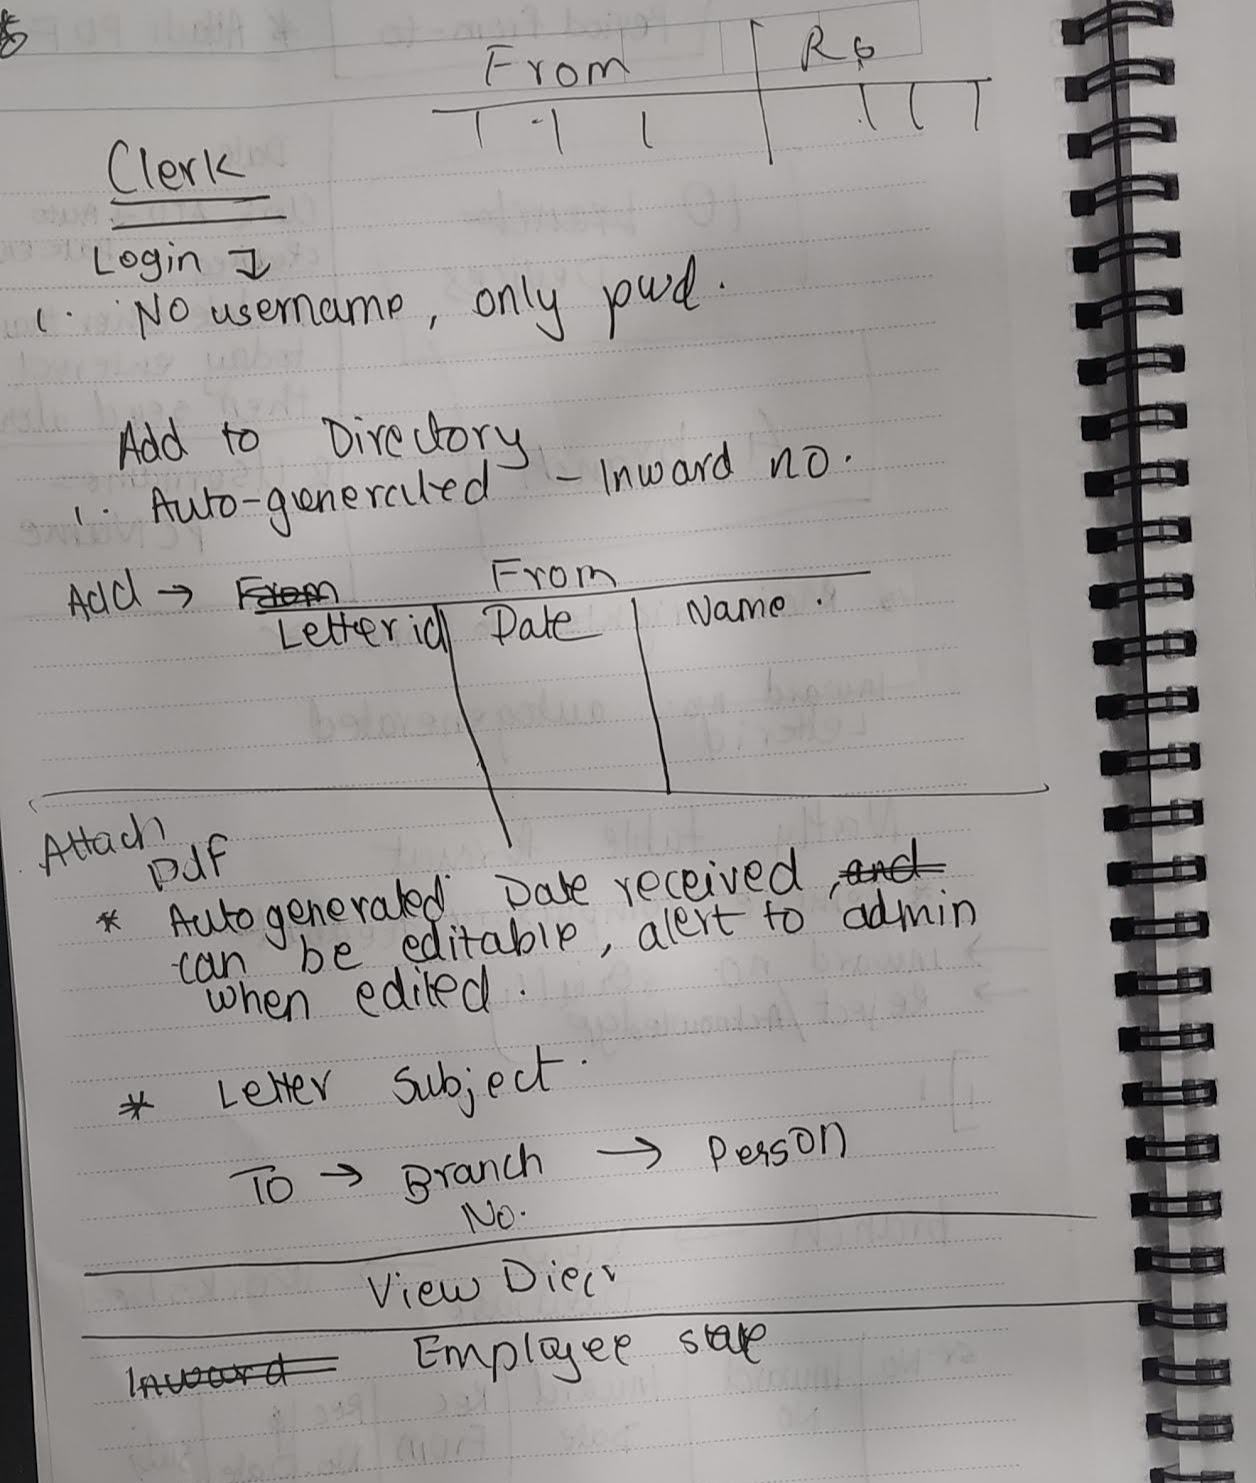 From
Clerk
Login ↓
1. No username, only pwd.
Add to Directory
1. Auto-generated - Inward no.
Add → From From
Letter id Date Name.
Attach
Pdf
* Auto generated Date received, and
can be editable, alert to admin
when edited.
* Letter Subject.
To → Branch → Person
No.
View
Inward Employee